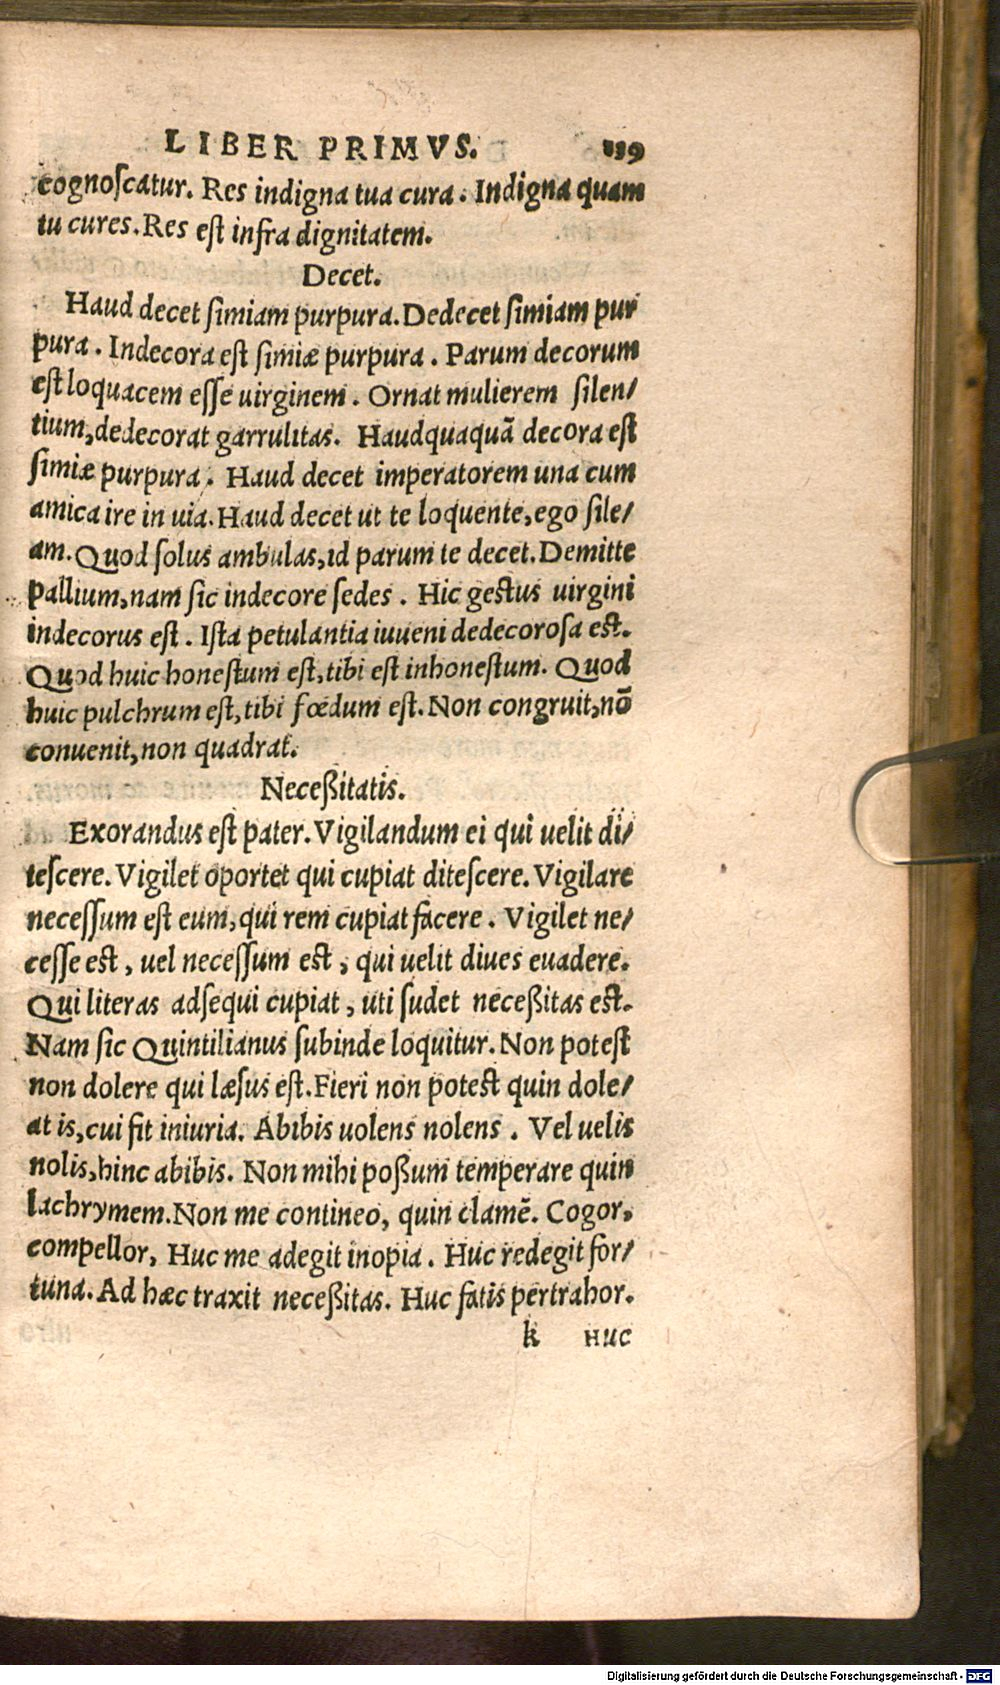 LIBER PRIMVS. 139
cognoſcatur. Res indigna tua cura. Indigna quam
tu cures. Res eſt infra dignitatem.
Decet.
Haud decet ſimiam purpura. Dedecet ſimiam pur
pura. Indecora eſt ſimiæ purpura. Parum decorum
eſt loquacem eſſe uirginem. Ornat mulierem ſilen/
tium, dedecorat garrulitas. Haudquaquā decora eſt
ſimiæ purpura. Haud decet imperatorem una cum
amica ire in uia. Haud decet ut te loquente, ego ſile/
am. Quod ſolus ambulas, id parum te decet. Demitte
pallium, nam ſic indecore ſedes. Hic geſtus uirgini
indecorus eſt. Iſta petulantia iuueni dedecoroſa eſt.
Quod huic honeſtum eſt, tibi eſt inhoneſtum. Quod
huic pulchrum eſt, tibi fœdum eſt. Non congruit, nō
conuenit, non quadrat.
Neceßitatis.
Exorandus eſt pater. Vigilandum ei qui uelit di/
teſcere. Vigilet oportet qui cupiat diteſcere. Vigilare
neceſſum eſt eum, qui rem cupiat facere. Vigilet ne/
ceſſe eſt, uel neceſſum eſt, qui uelit diues euadere.
Qui literas adſequi cupiat, uti ſudet neceßitas eſt.
Nam ſic Quintilianus ſubinde loquitur. Non poteſt
non dolere qui læſus eſt. Fieri non poteſt quin dole/
at is, cui fit iniuria. Abibis uolens nolens. Vel uelis
nolis, hinc abibis. Non mihi poßum temperare quin
lachrymem. Non me contineo, quin clamē. Cogor,
compellor, Huc me adegit inopia. Huc redegit for/
tuna. Ad hæc traxit neceßitas. Huc fatis pertrahor.
k HUC
Digitalisierung gefördert durch die Deutsche Forschungsgemeinschaft - DFG